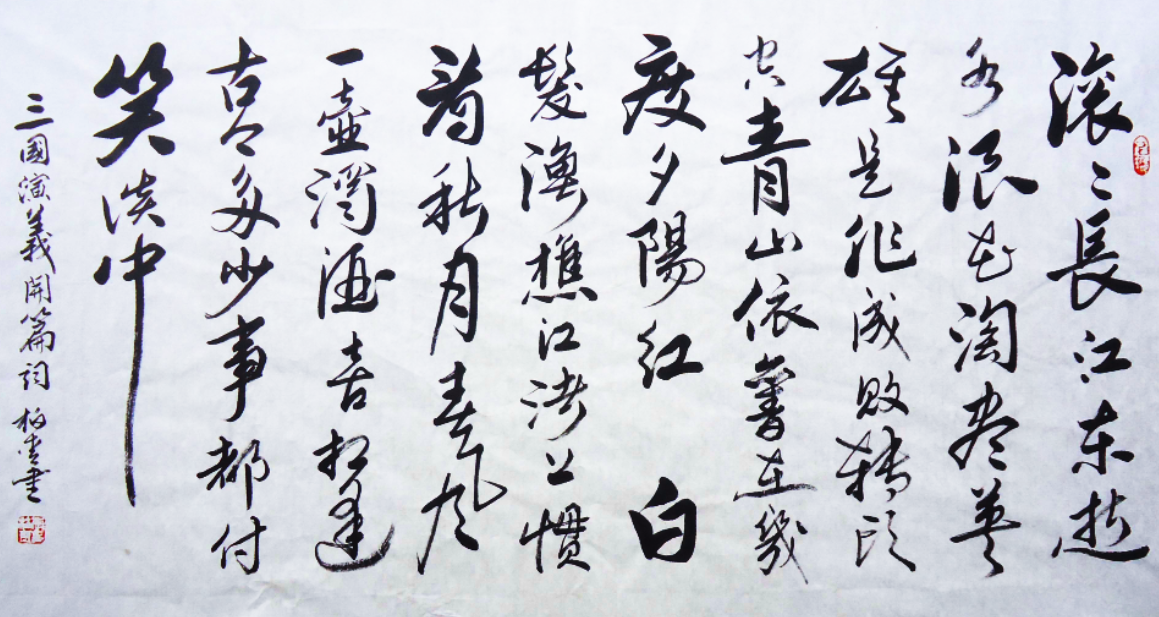 滾〻長江東逝
水浪花淘盡英
雄是非成敗轉頭
空青山依舊在幾
度夕陽紅 白
髮漁樵江渚上慣
看秋月春風
一壺濁酒喜相逢
古今多少事都付
笑談中
三國演義開篇詞 書